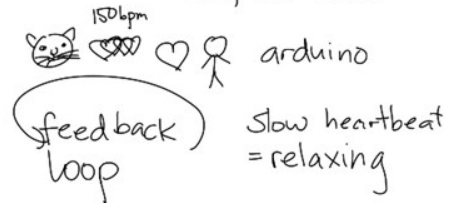 150bpm
arduino
feedback
loop
slow heartbeat
= relaxing